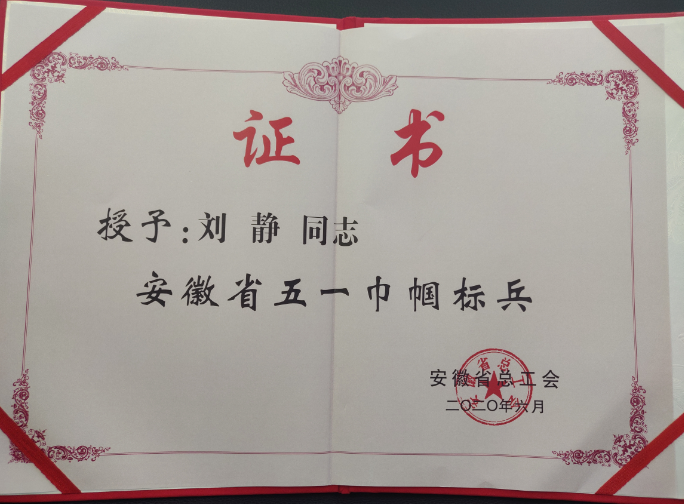 证书
授予：刘静 同志
安徽省五一巾帼标兵
安徽省总工会
二〇二〇年六月